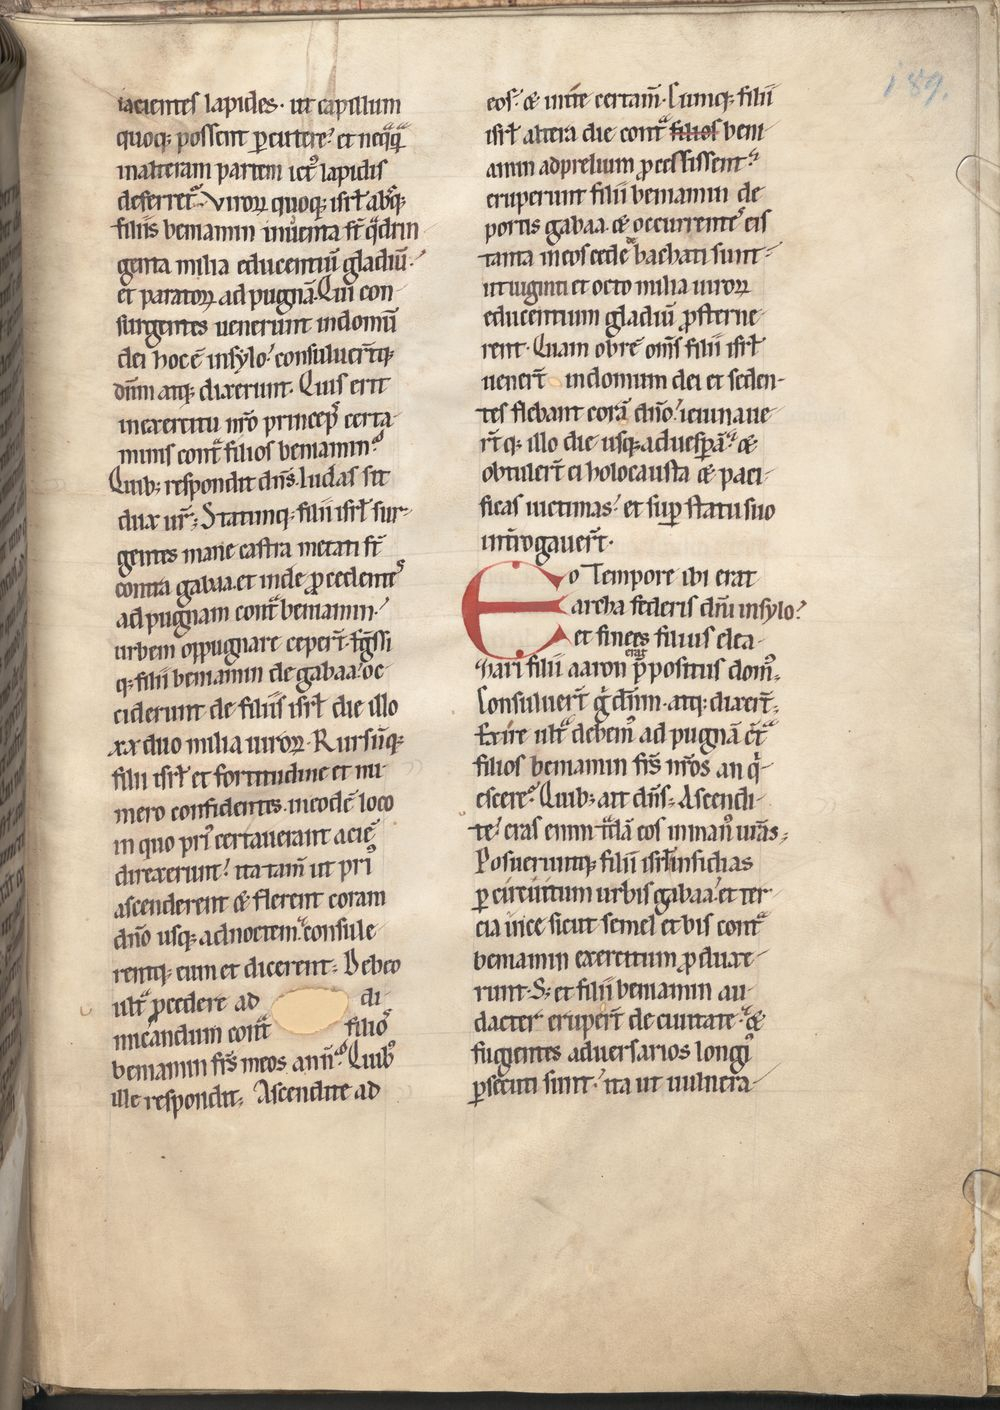 189.
iacientes lapides· ut capillum
quoq; possent p̱cutere? et neq̃q̃
inalteram partem ict᷒ lapidis
deferret᷑. Viroꝝ quoq; isrł absq;
filiis beniamin inuenta st̄ q̃drin
genta milia educentiū gladiū.
et paratoꝝ ad pugnā. Qui con-
surgentes uenerunt indomū
dei hoc ē insylo? consuluer̄t q;
dn̄m atq; dixerunt. Quis erit
inexercitu nr̄o princeps certa-
minis cont̃ filios beniamin?
Quib; respondit dn̄s. Iudas sit
dux ur̄. Statimq; filii isrł sur-
gentes mane castra metati st̄
contra gabaa. et inde p̱cedentes
ad pugnam cont̃ beniamin.
urbem oppugnare ceper̄t. Egssi
q; filii beniamin de gabaa? oc-
ciderunt de filiis isrł die illo
xx duo milia uiroꝝ. Rursūq;
filii isrł et fortitudine et nu-
mero confidentes. ineodē loco
in quo pri᷒ certauerant aciē
direxerunt? ita tam̄ ut pri᷒
ascenderent & flerent coram
dn̄o usq; adnoctem. consule-
rentq; eum et dicerent. Debeo
ult̃ p̱cedere ad di-
micandum cont̃ filios
beniamin frs̄ meos an n̄? Quib᷒
ille respondit. Ascendite ad
eos? & inite certam̄. Cumq; filii
isrł altera die cont̃ filios beni-
amin adprelium p̱cessissent?
eruperunt filii beniamin de
portis gabaa. & occurrentes eis
tanta ineos cede bachati sunt
ut uiginti et octo milia uiroꝝ
educentium gladiū p̱sterne-
rent. Quam obrē om̄s filii isrł
uener̄t indomum dei et seden-
tes flebant corā dn̄o? ieiunaue-
r̄t q; illo die usq; aduesp̱ā? &
obtuler̄t ei holocausta & paci-
ficas uictimas? et sup̱ statu suo
int̄rogauer̄t.
Eo Tempore ibi erat
archa federis dn̄i insylo?
et finees filius elea-
zari filii aaron erat p̄positus dom᷒.
Consuluer̄t g̊ dn̄m. atq; dixer̄t.
Exire ult̃ debem᷒ ad pugnā c̄t̃
filios beniamin frs̄ nr̄os an q̇-
escere? Quib; ait dn̄s. Ascendi-
te? cras enim t̃dā eos inman᷒ ur̃as.
Posueruntq; filii isrł insidias
p̱ circuitum urbis gabaa. et ter-
cia uice sicut semel et bis cont̃
beniamin exercitum p̱duxe-
runt. S; et filii beniamin au-
dacter eruper̄t de ciuitate? &
fugientes aduersarios longi᷒
p̱secuti sunt? ita ut uulnera-